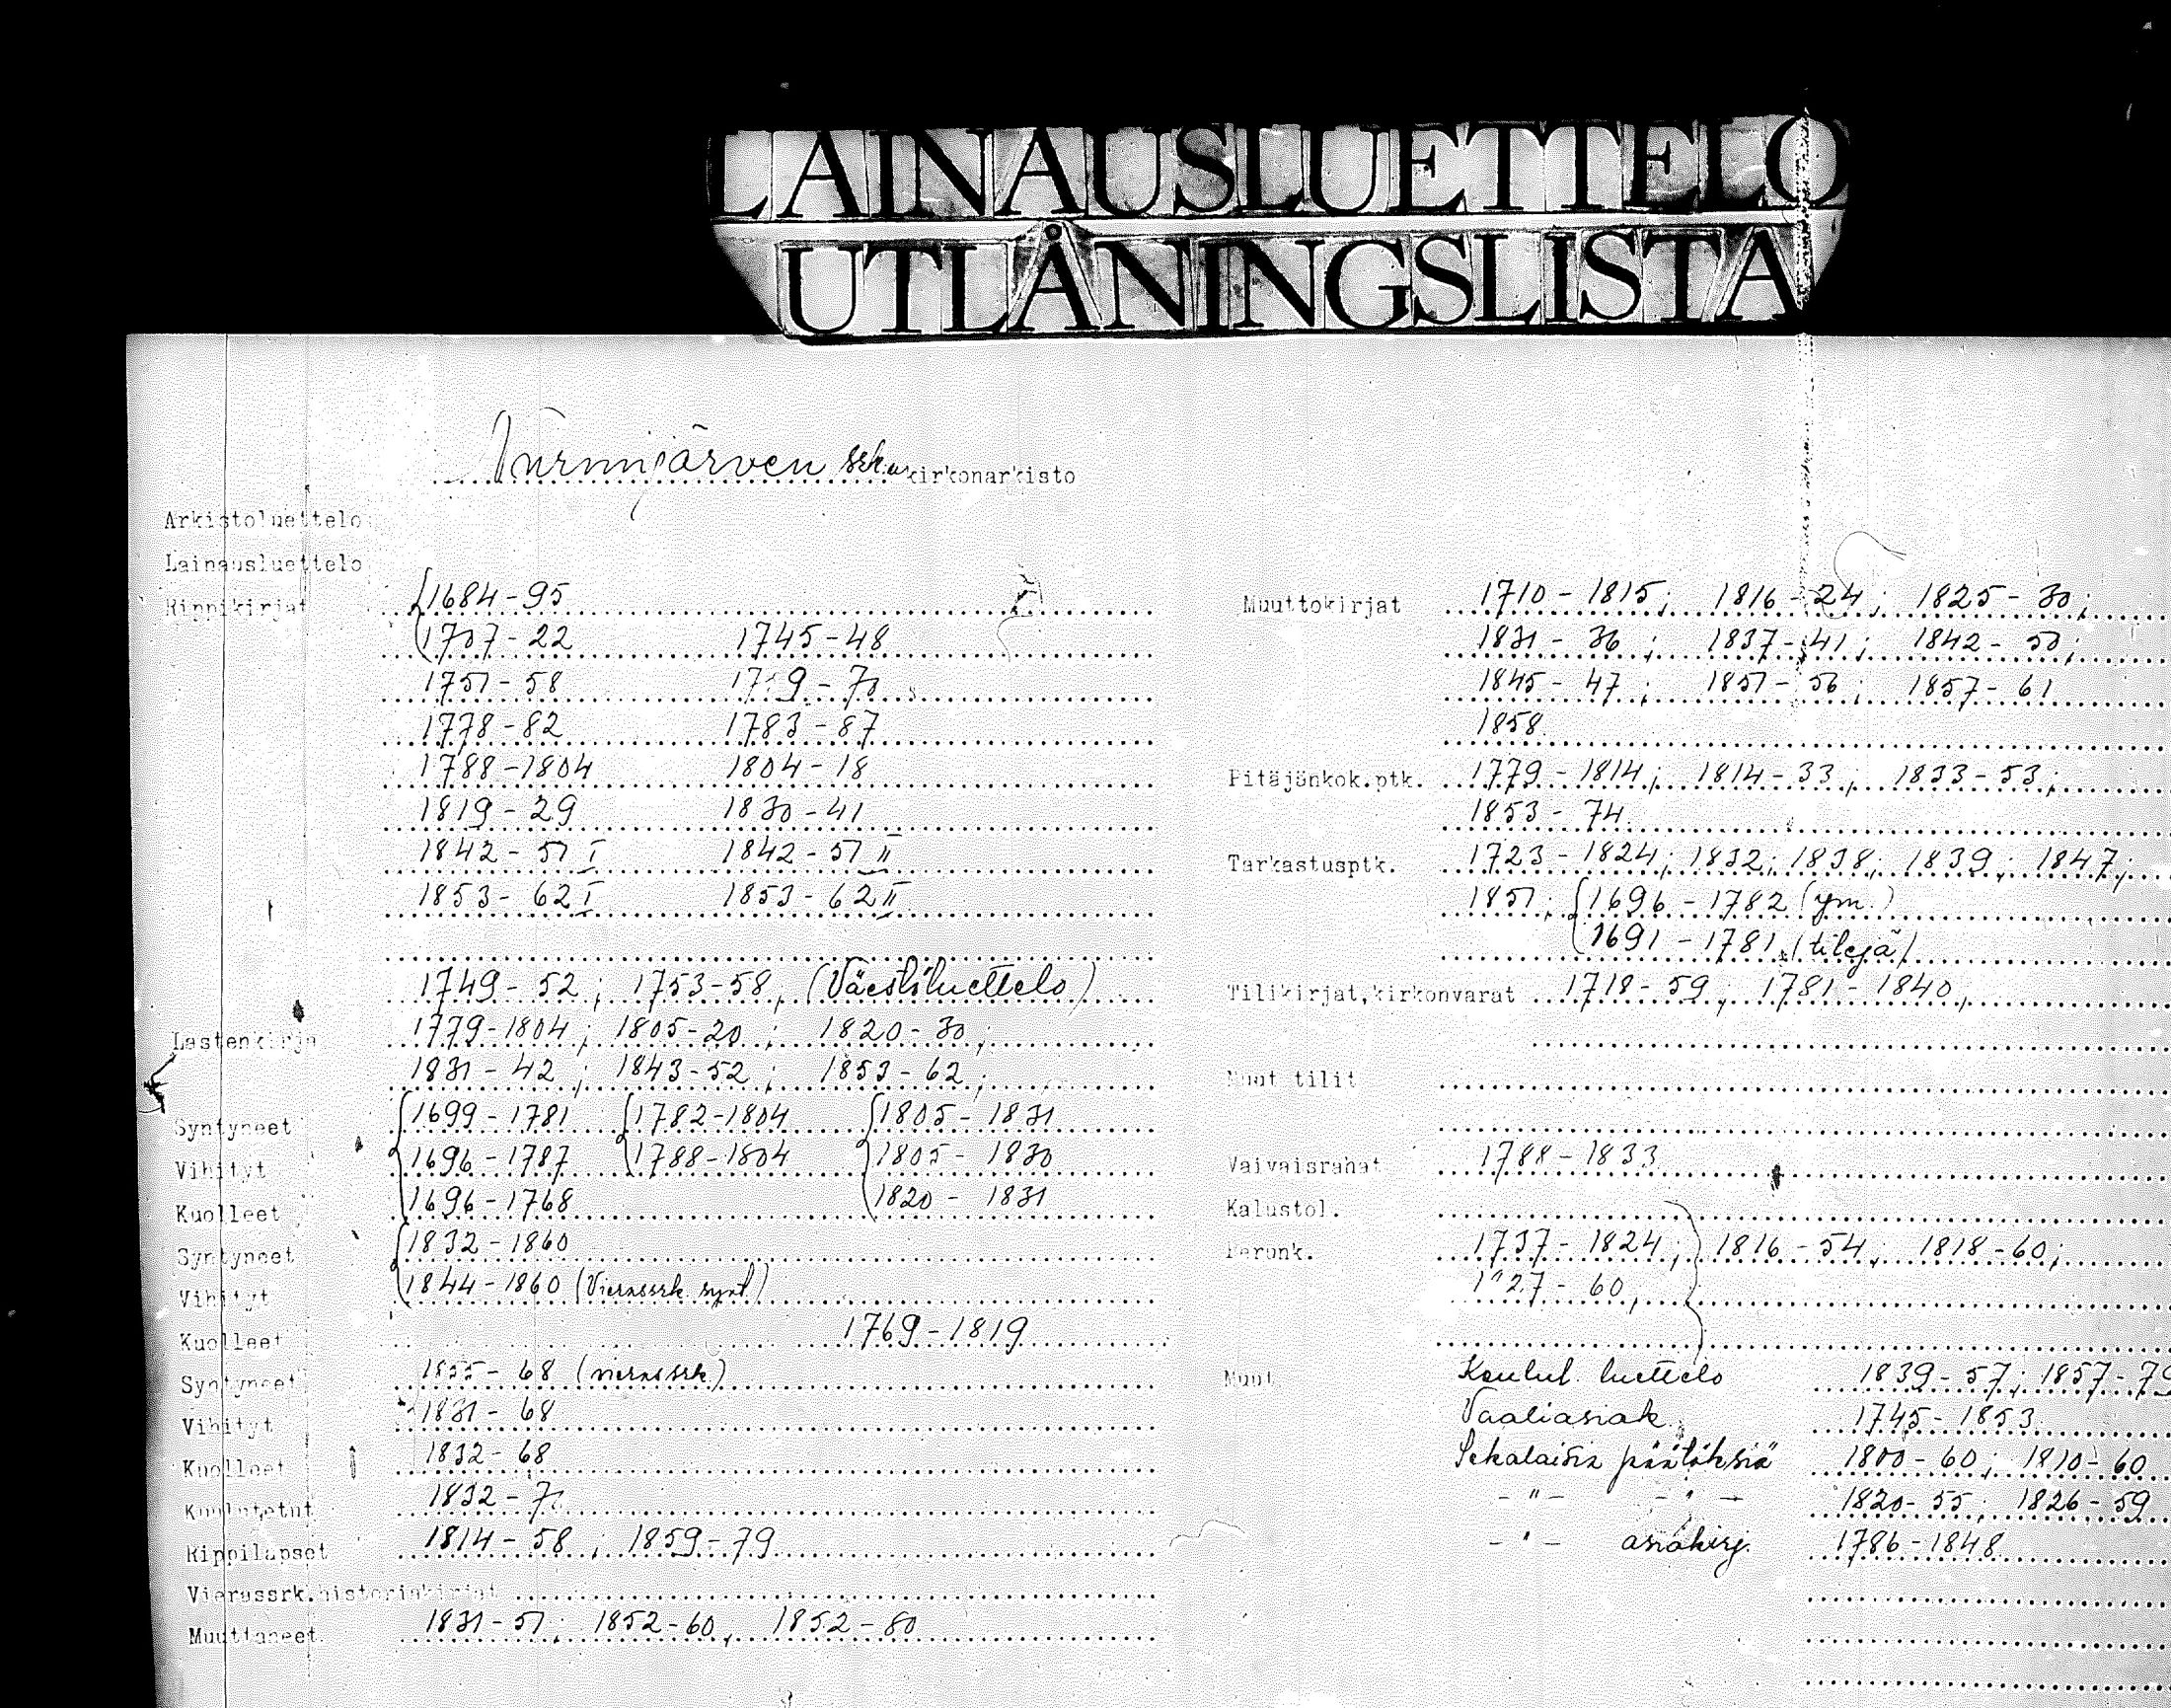 LAINAUSLUETTELO
UTLÅNINGSLISTA
Nurmijärven srk.n kirkonarkisto
Arkistoluettelo
Lainausluettelo
Rippikirjat 1684-95
1707-22 1745-48
1751-58
1778-82 1783-87
1788-1804 1804-18
1819-29 1830-41
1842-51 I 1842-51 II
1853-62 I 1853-62 II
1749-52; 1753-58, (Väestöluettelo)
Lastenkirja 1779-1804; 1805-20; 1820-30;
1831-42; 1843-52; 1853-62;
Syntyneet 1699-1781 1782-1804 1805-1831
Vihityt 1696-1787 1788-1804 1805-1830
Kuolleet 1696-1768 1820-1831
Syntyneet 1832-1860
Vihityt 1844-1860 (Vierassrk. synt.)
Kuolleet 1769-1819
Syntyneet 1855-68 (vierassrk.)
Vihityt 1831-68
Kuolleet 1832-68
Kuulutetut
Rippilapset 1814-58; 1859-79
Vierassrk.historiakirjat
Muuttaneet 1831-51; 1852-60, 1852-80
Muuttokirjat 1710-1815; 1816-24; 1825-30;
1831-36; 1837-41; 1842-50;
1845-47; 1851-56; 1857-61
1858
Pitäjänkok.ptk. 1779-1814; 1814-33; 1833-53;
1853-74
Tarkastusptk. 1723-1824; 1832; 1838; 1839; 1847;
1851; 1696-1782 (ym.)
1691-1781 (tilejä)
Tilikirjat,kirkonvarat 1718-59; 1781-1840,
Muut tilit
Vaivaisrahat 1788-1833
Kalustol.
Peronk. 1737-1824; 1816-54; 1818-60;
27-60,
Muut Koulul. luettelo 1839-57; 1857-79
Vaaliasiak. 1745-1853
Sekalaisia päätöksiä 1800-60; 1810-60
-"- -"- 1820-55; 1826-59
-"- asiakirj. 1786-1848